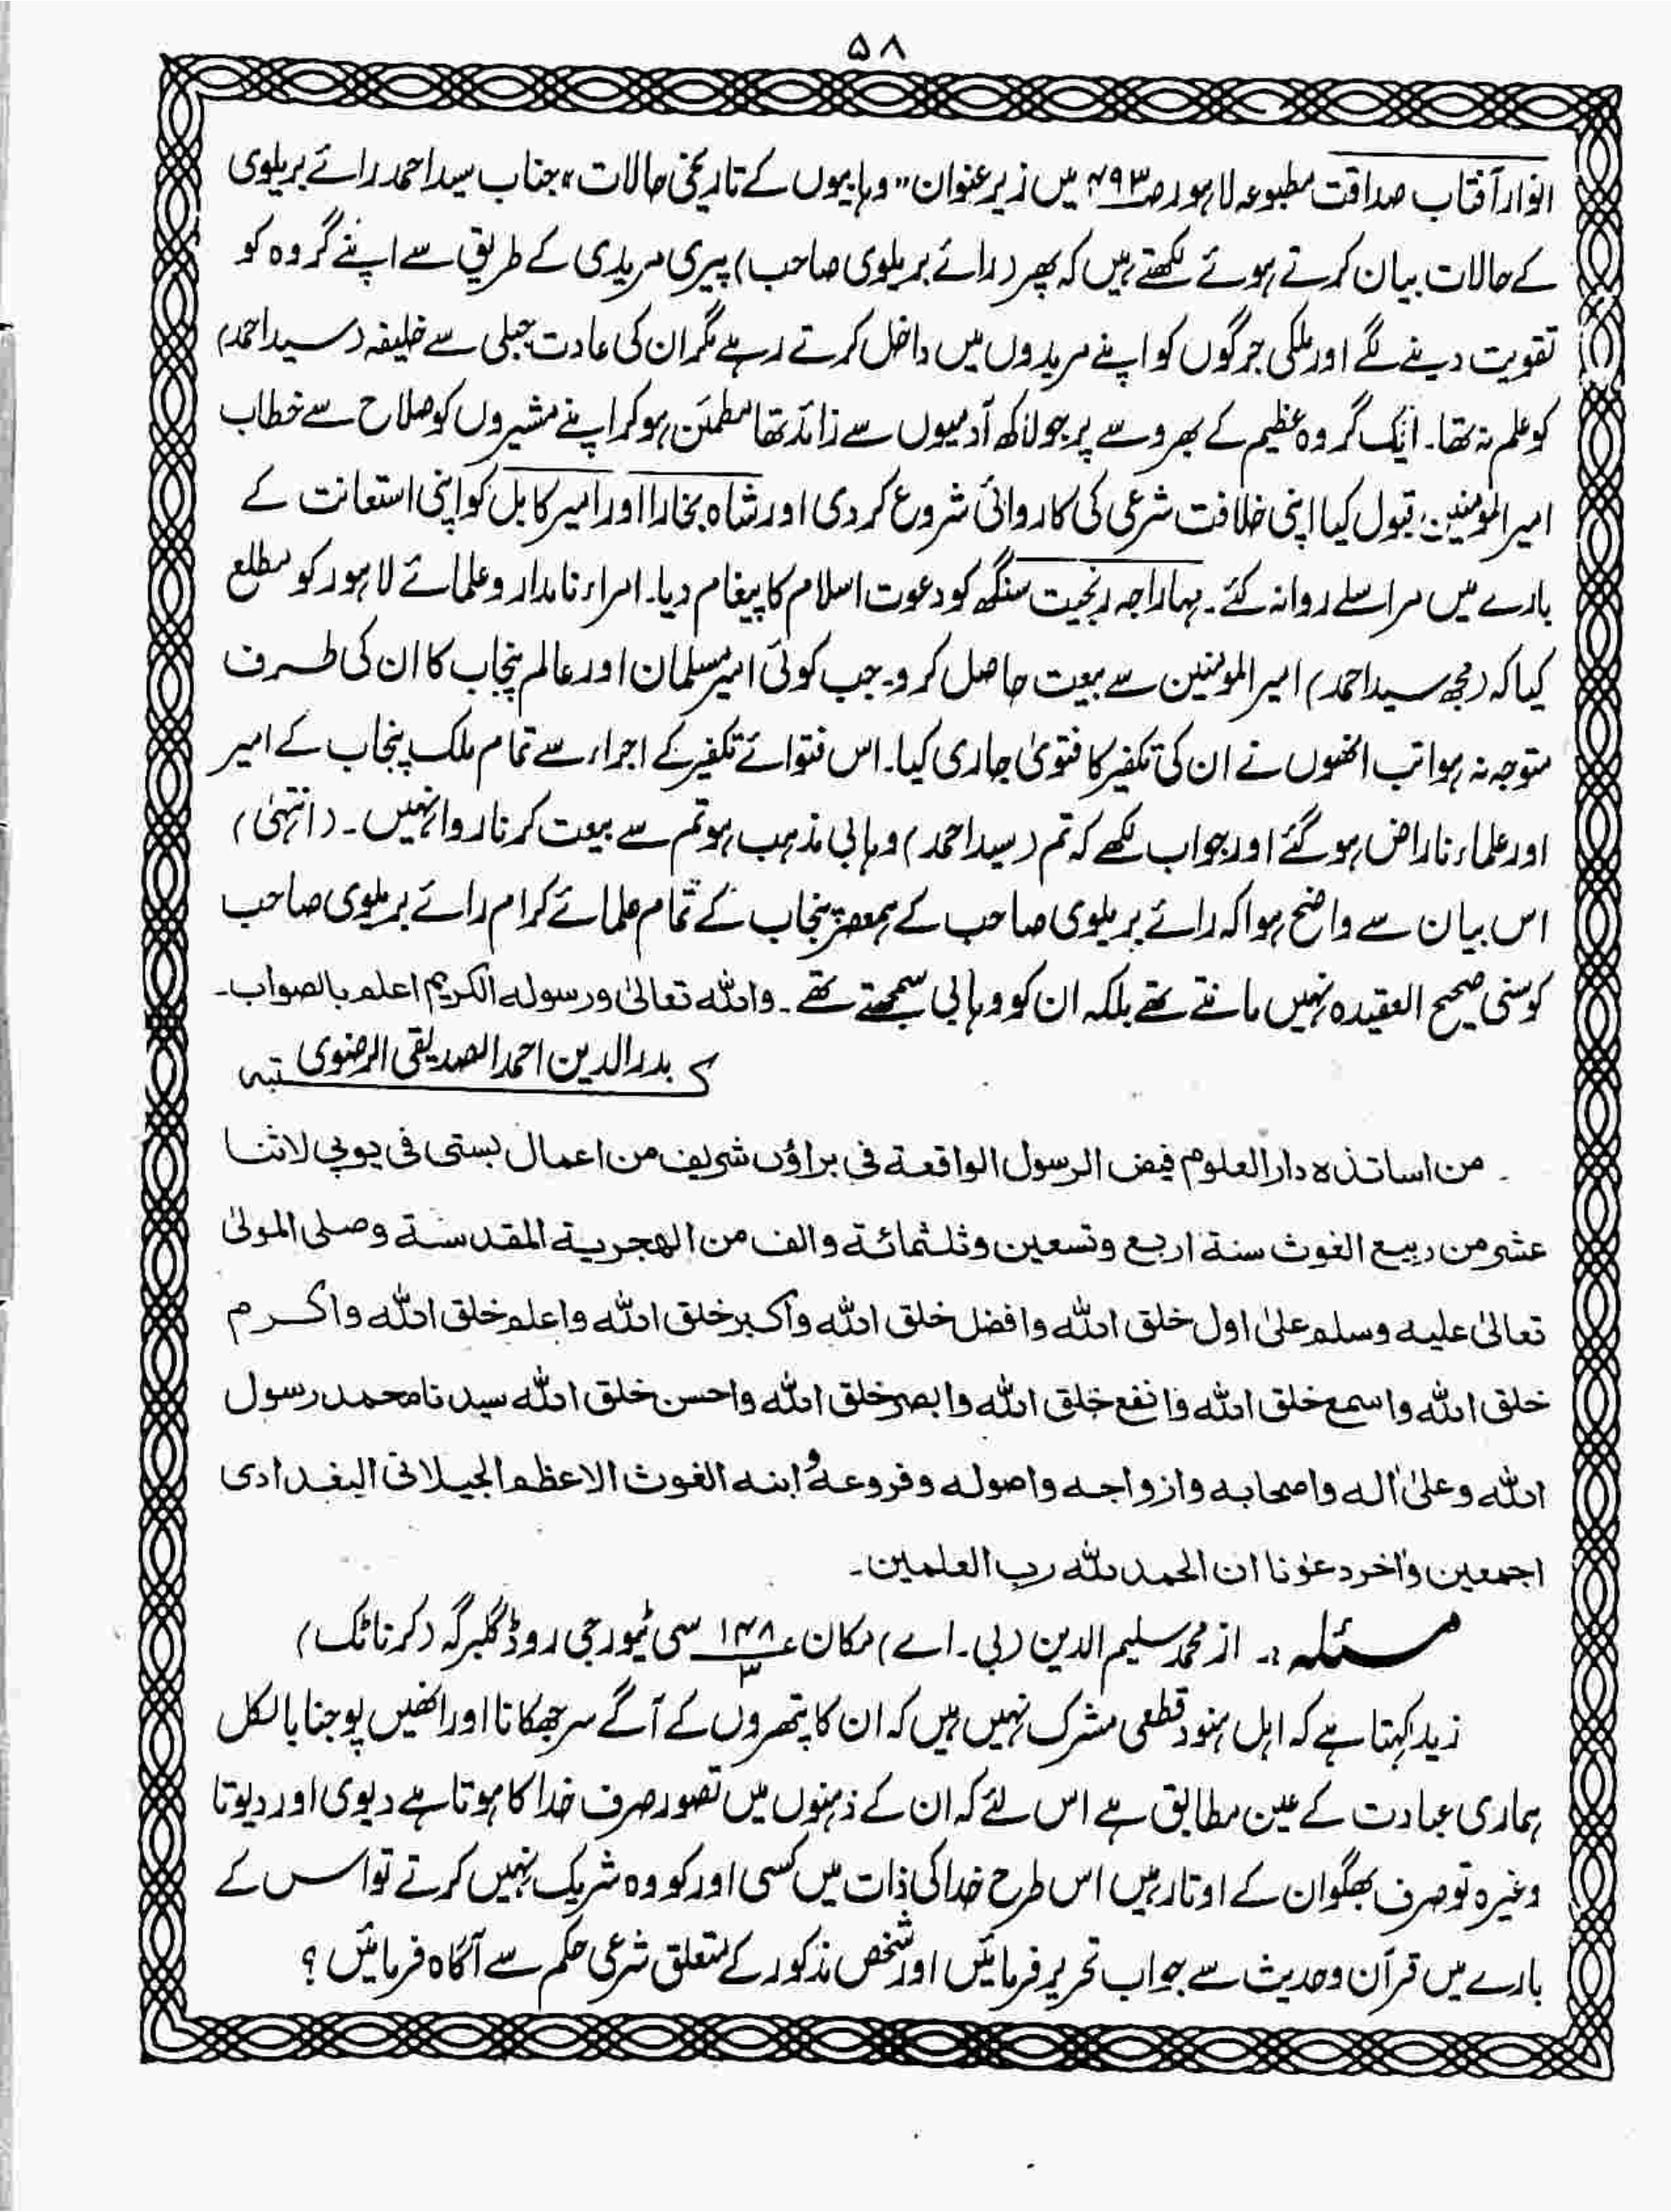 ۵۸
انوار آفتاب صداقت مطبوعہ لاہور ص۴۹۳ میں زیر عنوان "وہابیوں کے تاریخی حالات" جناب سید احمد رائے بریلوی
کے حالات بیان کرتے ہوئے لکھتے ہیں کہ پھر (رائے بریلوی صاحب) پیری مریدی کے طریق سے اپنے گروہ کو
تقویت دینے لگے اور ملکی جرگوں کو اپنے مریدوں میں داخل کرتے رہے مگر ان کی عادت جبلی سے خلیفہ (سید احمد)
کو علم نہ تھا۔ ایک گروہ عظیم کے بھروسے پر جو لاکھ آدمیوں سے زائد تھا مطمئن ہو کر اپنے مشیروں کو صلاح سے خطاب
امیر المومنین قبول کیا اپنی خلافت شرعی کی کاروائی شروع کر دی اور شاہ بخارا اور امیر کابل کو اپنی استعانت کے
بارے میں مراسلے روانہ کئے۔ مہاراجہ رنجیت سنگھ کو دعوت اسلام کا پیغام دیا۔ امراء نامدار و علمائے لاہور کو مطلع
کیا کہ (مجھ سید احمد) امیر المومنین سے بیعت حاصل کرو۔ جب کوئی امیر مسلمان اور عالم پنجاب کا ان کی طرف
متوجہ نہ ہوا تب انھوں نے ان کی تکفیر کا فتویٰ جاری کیا۔ اس فتوائے تکفیر کے اجراء سے تمام ملک پنجاب کے امیر
اور علماء ناراض ہو گئے اور جواب لکھے کہ تم (سید احمد) وہابی مذہب ہو تم سے بیعت کرنا روا نہیں۔ (انتہیٰ)
اس بیان سے واضح ہوا کہ رائے بریلوی صاحب کے ہمعصر پنجاب کے تمام علمائے کرام رائے بریلوی صاحب
کو سنی صحیح العقیدہ نہیں مانتے تھے بلکہ ان کو وہابی سمجھتے تھے۔ واللہ تعالیٰ ورسولہ الکریم اعلم بالصواب۔
کتبہ بدر الدین احمد الصدیقی الرضوی
من اساتذہ دار العلوم فیض الرسول الواقعۃ فی براؤں شریف من اعمال بستی فی یوپی لاثنا
عشر من ربیع الغوث سنۃ اربع وتسعین وثلثمائۃ والف من الھجریۃ المقدسۃ وصلی المولیٰ
تعالیٰ علیہ وسلم علیٰ اول خلق اللہ وافضل خلق اللہ واکبر خلق اللہ واعلم خلق اللہ واکرم
خلق اللہ واسمع خلق اللہ وانفع خلق اللہ وابصر خلق اللہ واحسن خلق اللہ سیدنا محمد رسول
اللہ وعلیٰ اٰلہ واصحابہ وازواجہ واصولہ وفروعہ وابنہ الغوث الاعظم الجیلانی البغدادی
اجمعین واٰخر دعوٰنا ان الحمد للہ رب العلمین۔
مسئلہ:۔ از محمد سلیم الدین (بی۔ اے) مکان ع ۱۴۸/۳ سی ٹیمورجی روڈ گلبرگہ (کرناٹک)
زید کہتا ہے کہ اہل ہنود قطعی مشرک نہیں ہیں کہ ان کا پتھروں کے آگے سر جھکانا اور انھیں پوجنا بالکل
ہماری عبادت کے عین مطابق ہے اس لئے کہ ان کے ذہنوں میں تصور صرف خدا کا ہوتا ہے دیوی اور دیوتا
وغیرہ تو صرف بھگوان کے اوتار ہیں اس طرح خدا کی ذات میں کسی اور کو وہ شریک نہیں کرتے تو اس کے
بارے میں قرآن وحدیث سے جواب تحریر فرمائیں اور شخص مذکور کے متعلق شرعی حکم سے آگاہ فرمائیں ؟